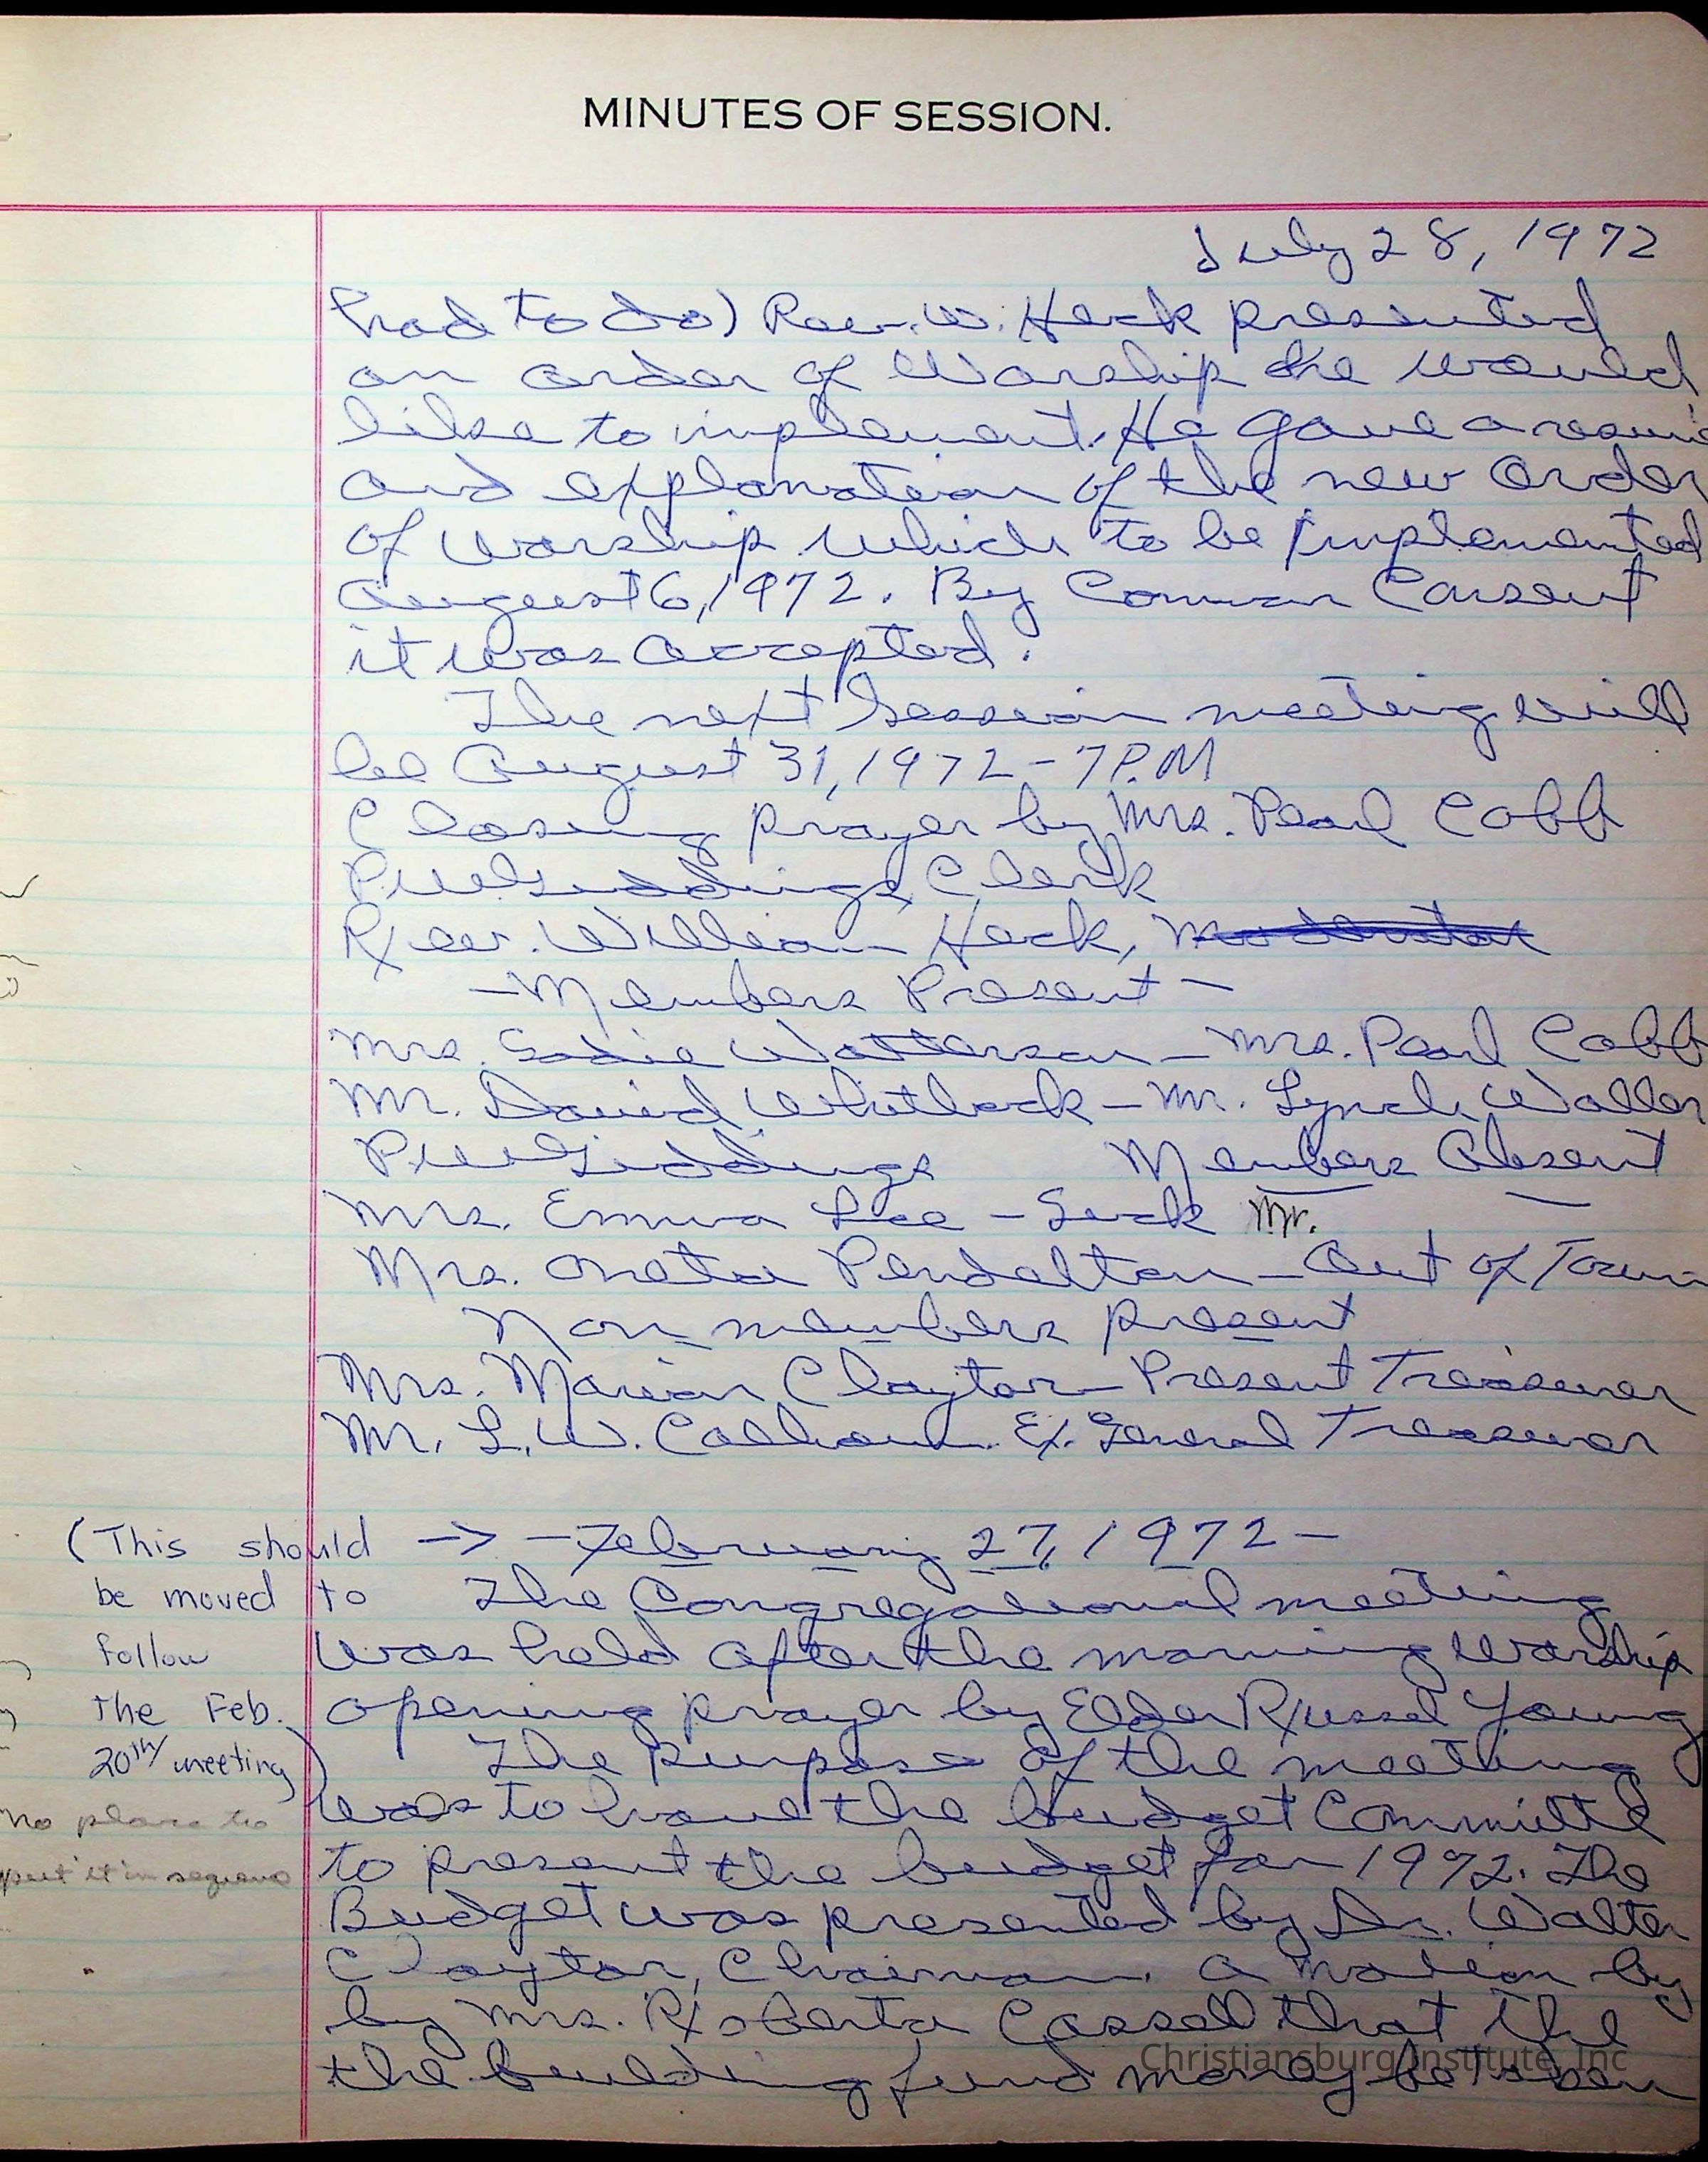 MINUTES OF SESSION.
July 28, 1972
had to do) Rev. W. Heck presented
an order of Worship he would
like to implement. He gave a
and explanation of the new order
of worship which to be implemented
August 6, 1972. By Common Consent
it was accepted.
The next Session meeting will
be August 31, 1972 - 7 P.M
Closing prayer by Mrs. Pearl Cobb
Giddings, Clerk
Rev. William Heck, Moderator
- Members Present -
Mrs. Sadie Watterson - Mrs. Pearl Cobb
Mr. David Whitlock - Mr. Lynch Waller
Giddings Members Absent
Mrs. Emma Lee - Sick Mr.
Mrs. Oneta Pendelton - Out of Town
Non members present
Mrs. Marian Clayton - Present Treasurer
Mr. L. W. Calhoun. Ex. General Treasurer
(This should -> - February 27, 1972 -
be moved to The Congregational meeting
follow was held after the morning worship
the Feb. opening prayer by Elder Russel Young
20th meeting) The purpose of the meeting
no place to was to have the budget Committe
put it in to present the budget for 1972. The
Budget was presented by Dr. Walter
Clayton, Chairman. A motion by
by Mrs. Roberta Cassell that the
the building fund money be taken
Christiansburg Institute, Inc